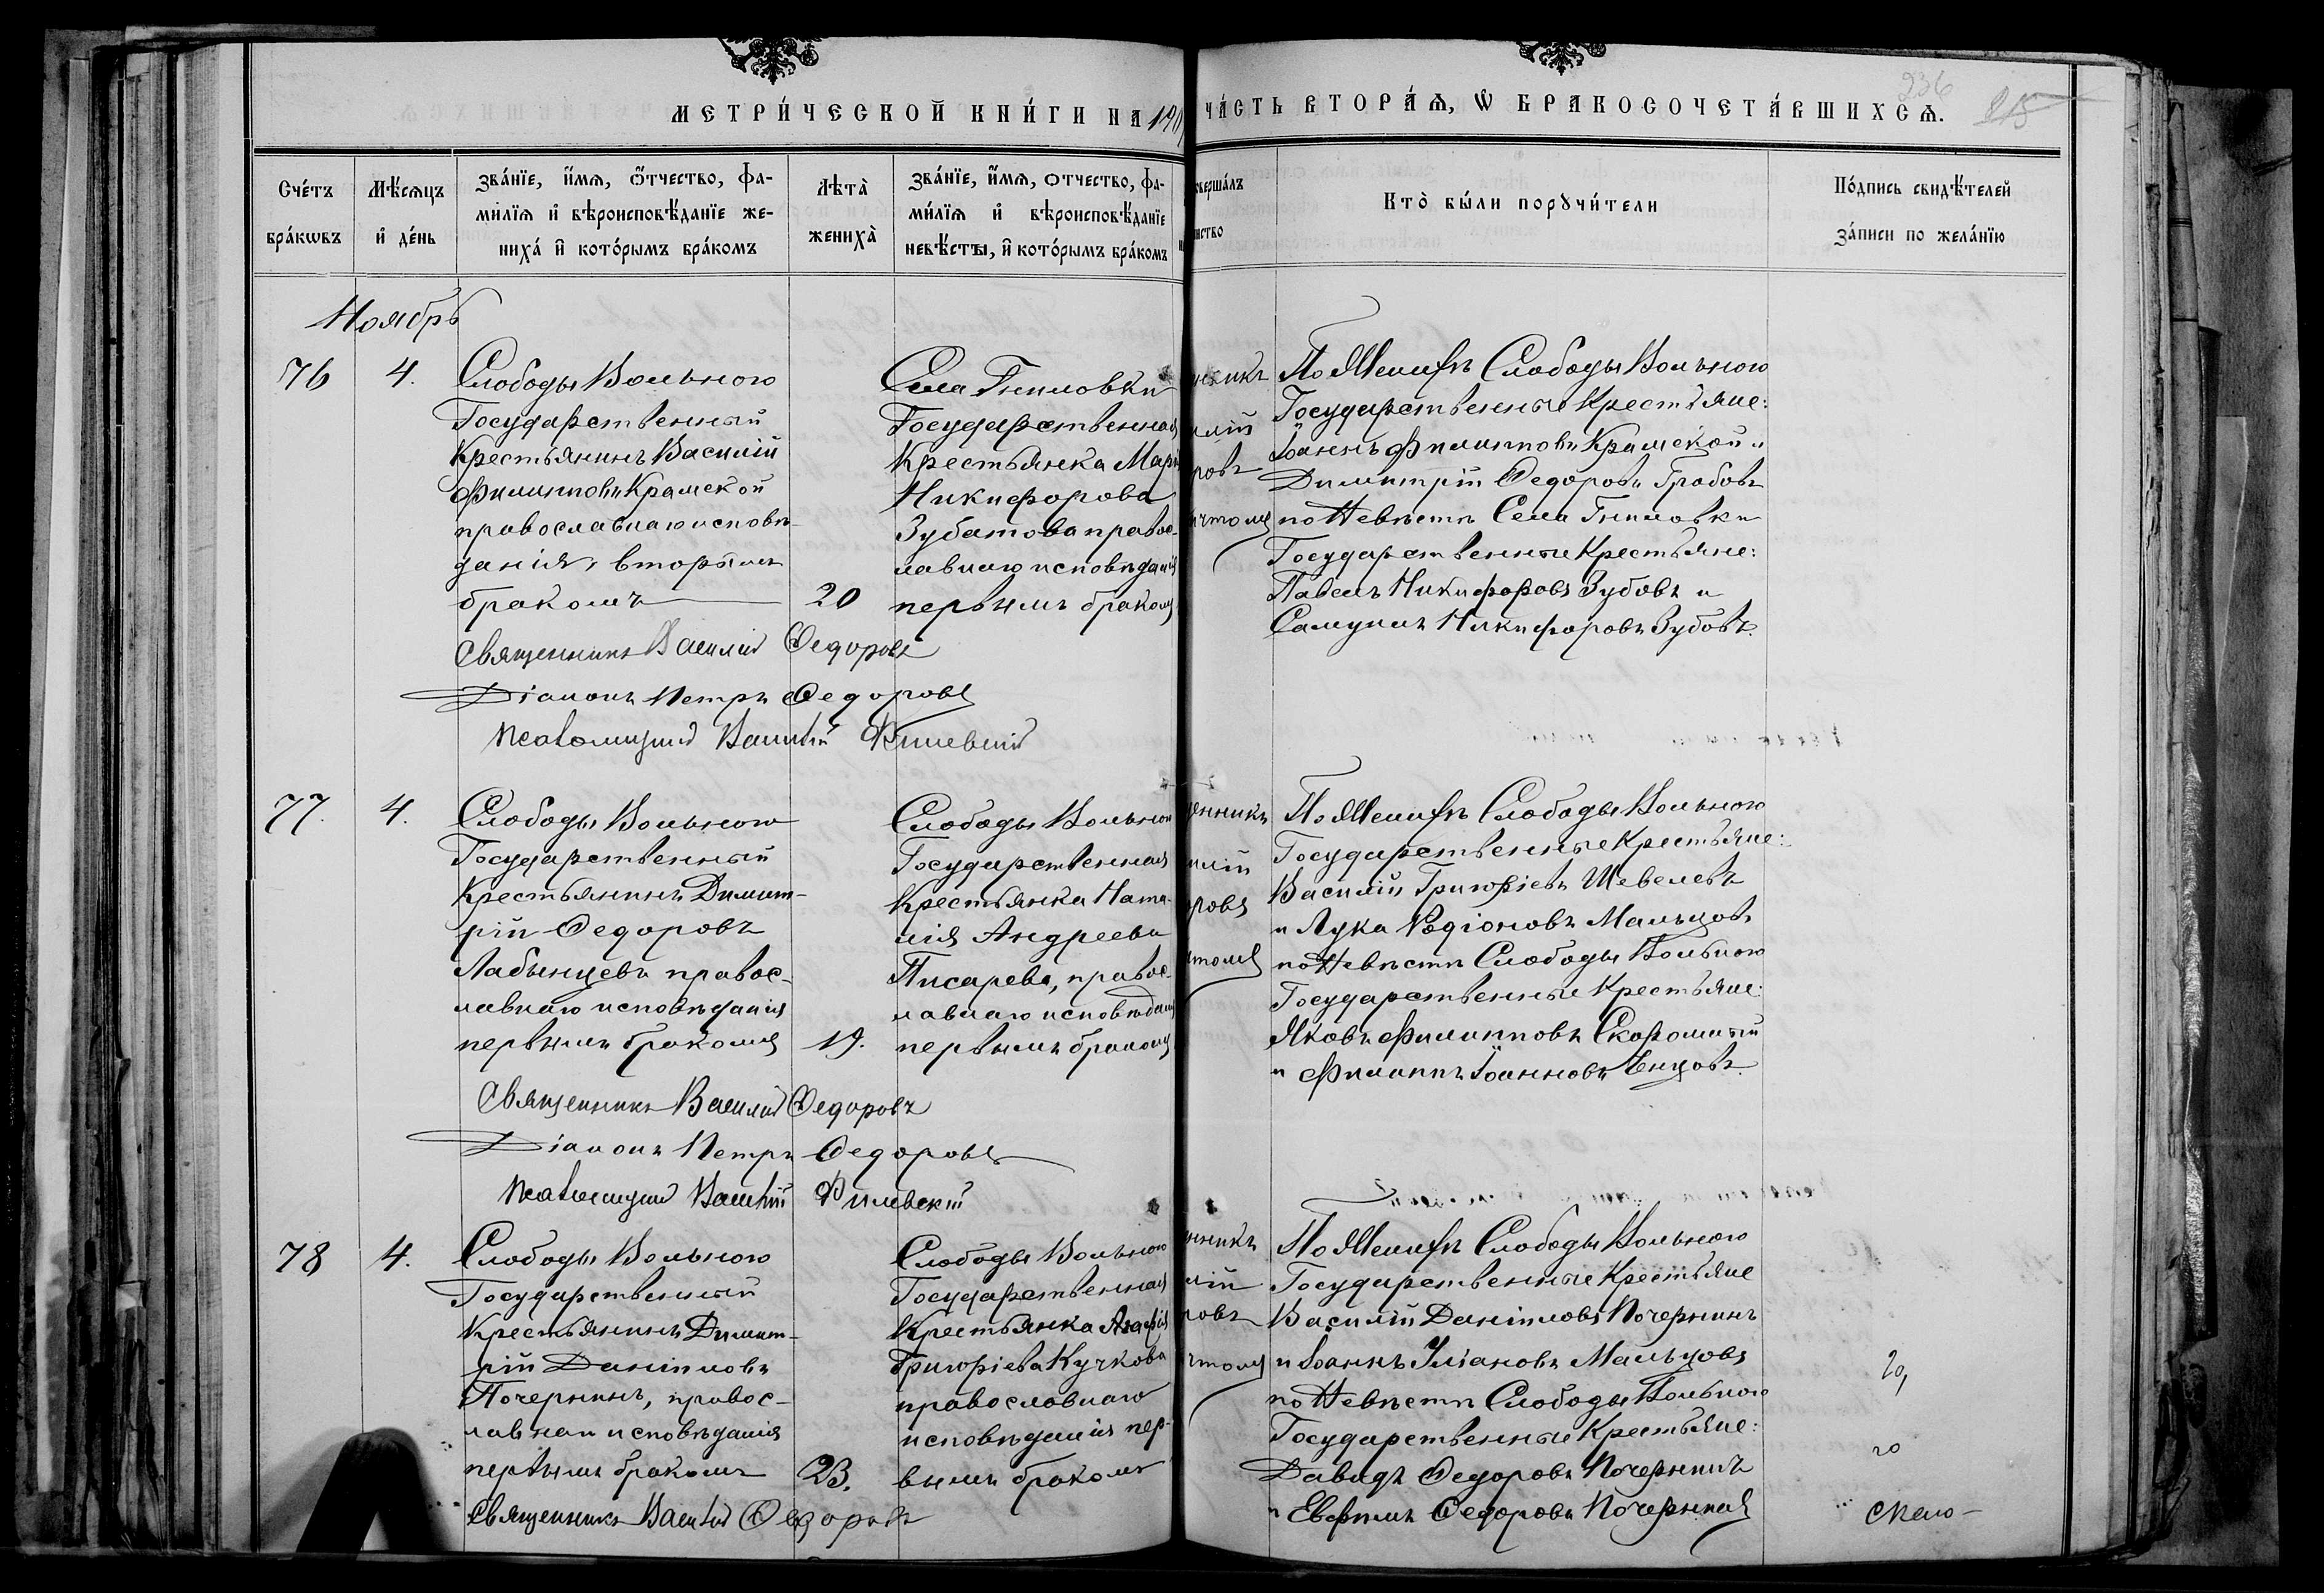 МЕТРИ́ЧЕСКОЙ КНИ́ГИ НА 190
ЧА́СТЬ ВТОРА́Ѧ, Ѡ БРАКОСОЧЕТА́ВШИХСѦ.
236
215
Сче́тъ бра́кѡвъ
Мѣ́сѧцъ и҆ де́нь
Зва́нїе, и҆́мѧ, ѻ҆́тчество, фа-
ми́лїѧ и҆ вѣроисповѣ́данїе же-
ниха́ и҆ кото́рымъ бра́комъ
Лѣта̀ жениха̀
Зва́нїе, и҆́мѧ, ѻтчество, фа-
ми́лїѧ и҆ вѣроисповѣ́данїе
невѣ́сты, и҆ кото́рымъ бра́комъ
оверша́лъ
нство
Кто̀ бы́ли порꙋчи́тели
По́дпись свидѣ́телей
за́писи по жела́нїю
Ноябрь
76
4.
Слободы Вольного
Государственный
Крестьянинъ Василій
Филипповъ Крамской
православнаго исповѣ-
данія, вторымъ
бракомъ
20
Села Гниловки
Государственная
Крестьянка Марі
Никифорова
Зубатова правос-
лавнаго исповѣданія
первымъ бракомъ
нникъ
илій
ровъ
По Женихѣ Слободы Вольного
Государственные Крестьяне:
Іоаннъ Филипповъ Крамской и
Димитрій Ѳедоровъ Грабовъ
по Невѣстѣ Села Гниловки
Государственные Крестьяне:
Павелъ Никифоровъ Зубовъ и
Самуилъ Никифоровъ Зубовъ.
Священникъ Василій Ѳедоровъ
Діаконъ Петръ Ѳедоровъ
Псаломщикъ Василій
77.
4.
Слободы Вольного
Государственный
Крестьянинъ Димит-
рій Ѳедоровъ
Лабынцевъ правос-
лавнаго исповѣданія
первымъ бракомъ
19.
Слободы Вольного
Государственная
Крестьянка Ната-
лія Андреева
Писарева, правос-
лавнаго исповѣданія
первымъ бракомъ
енникъ
илій
ровъ
По Женихѣ Слободы Вольного
Государственные Крестьяне:
Василій Григоріевъ Шевелевъ
и Лука Родіоновъ Мальцовъ
по Невѣстѣ Слободы Вольного
Государственные Крестьяне:
Яковъ Филипповъ Скоромный
и Филиппъ Іоанновъ
Священникъ Василій Ѳедоровъ
Діаконъ Петръ Ѳедоровъ
Псаломщикъ Василій
78
4.
Слободы Вольного
Государственный
Крестьянинъ Димит-
рій Даніиловъ
Почернинъ, правос-
лавнаго исповѣданія
первымъ бракомъ
23.
Слободы Вольного
Государственная
Крестьянка Агафія
Григоріева Кучкова
православнаго
исповѣданія пер-
вымъ бракомъ
нникъ
лій
ровъ
По Женихѣ Слободы Вольного
Государственные Крестьяне
Василій Даніиловъ Почернинъ
и Іоаннъ Уліановъ Мальцовъ
по Невѣстѣ Слободы Вольного
Государственные Крестьяне:
Давидъ Ѳедоровъ Почернинъ
и Евфимъ Ѳедоровъ Почернинъ
Священникъ Василій Ѳедоровъ